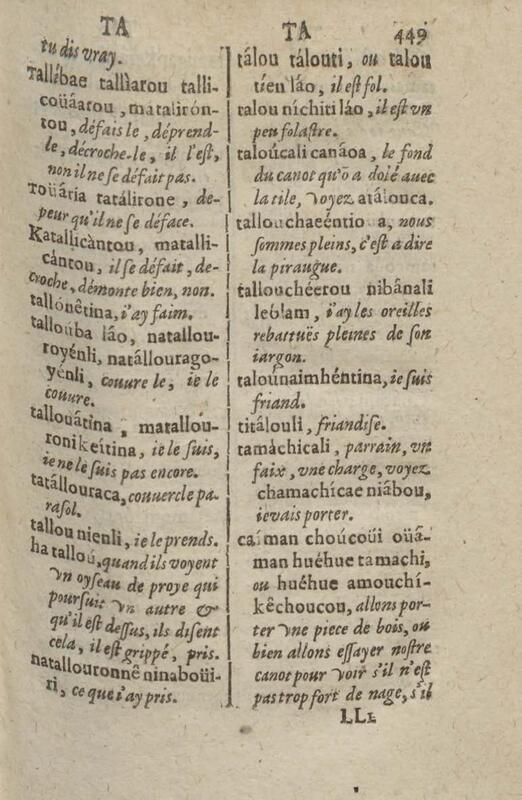 TA
tu dis vray.
Tallíbae tallìarou talli-
coüáarou, matalirón-
tou, défais le, déprend-
le, décroche-le, il l'est,
non il ne se défait pas.
Toüária tatálirone, de-
peur qu'il ne se déface.
Katallicàntou, matalli-
cántou, il se défait, de-
croche, démonte bien, non.
tallónêtina, i'ay faim.
tallouba láo, natallou-
royénli, natállourago-
yénli, couure le, ie le
couure.
tallouâtina, matallou-
ronikeítina, ie le suis,
ie ne le suis pas encore.
tatállouraca, couuercle pa-
rasol.
tallou nienli, ie le prends.
ha tallou, quand ils voyent
vn oyseau de proye qui
poursuit vn autre &
qu'il est dessus, ils disent
cela, il est grippé, pris.
natallouronnê ninaboüi-
ri, ce que i'ay pris.
TA 449
tálou tálouti, ou talou
tíen láo, il est fol.
talou níchiti láo, il est vn
peu folastre.
taloúcali canáoa, le fond
du canot qu'ō a dolé auec
la tile, voyez atálouca.
tallouchaeéntio a, nous
sommes pleins, c'est a dire
la piraugue.
tallouchéerou nibânali
leblam, i'ay les oreilles
rebattuës pleines de son
iargon.
taloúnaimhéntina, ie suis
friand.
titálouli, friandise.
tamàchicali, parrain, vn
faix, vne charge, voyez
chamachícae niábou,
ievais porter.
caíman choúcoüi oüá-
man huéhue tamachi,
ou huéhue amouchí-
kêchoucou, allons por-
ter vne piece de bois, ou
bien allons essayer nostre
canot pour voir s'il n'est
pas trop fort de nage, s'il
LLl